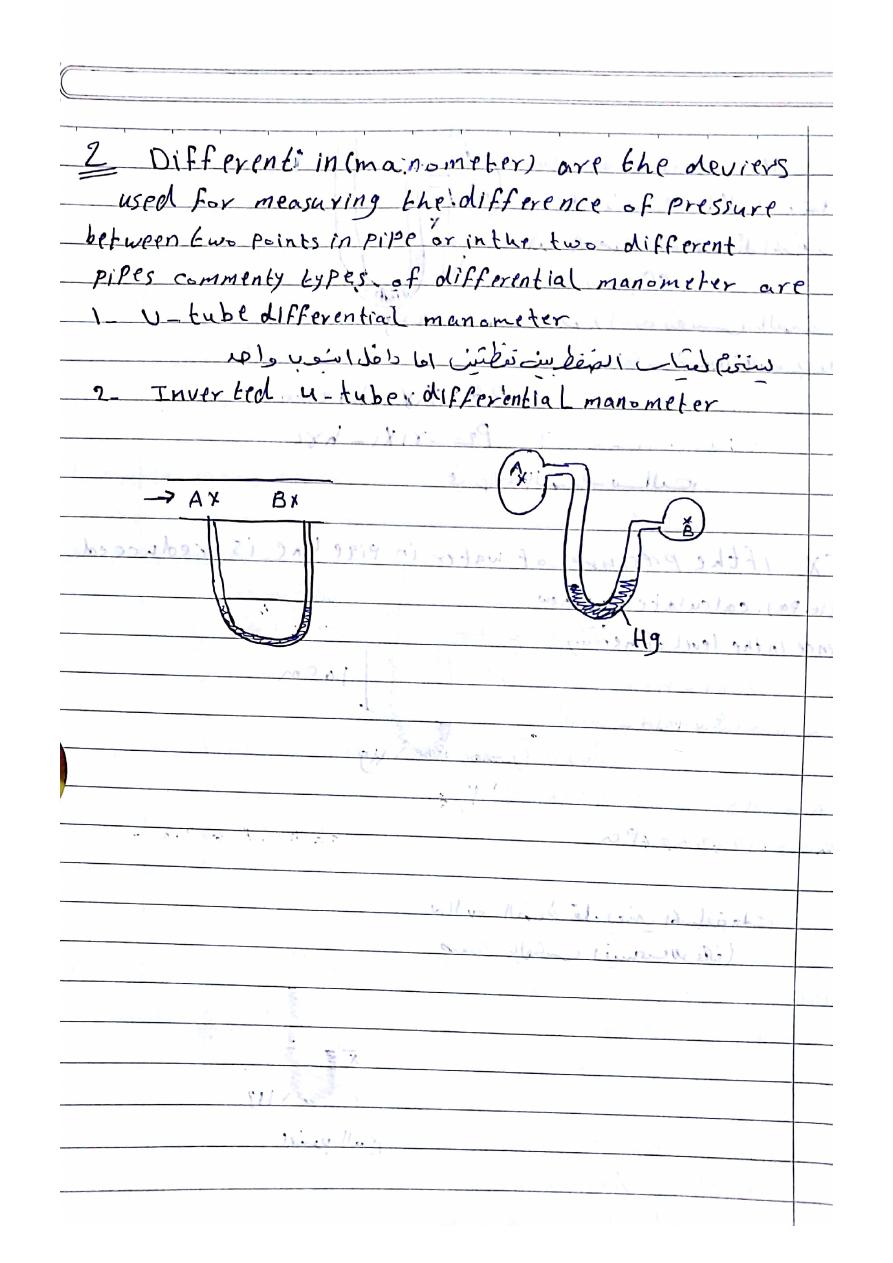 2 Different in (manometer) are the deviers
used for measuring the difference of pressure
between two points in pipe or in the two different
pipes commenty types of differential manometer are
1- U-tube differential manometer
يستخدم لقياس الضغط بين نقطتين اما داخل انبوب واحد
2- Inverted u-tube differential manometer
→ A× B×
A×
×B
Hg